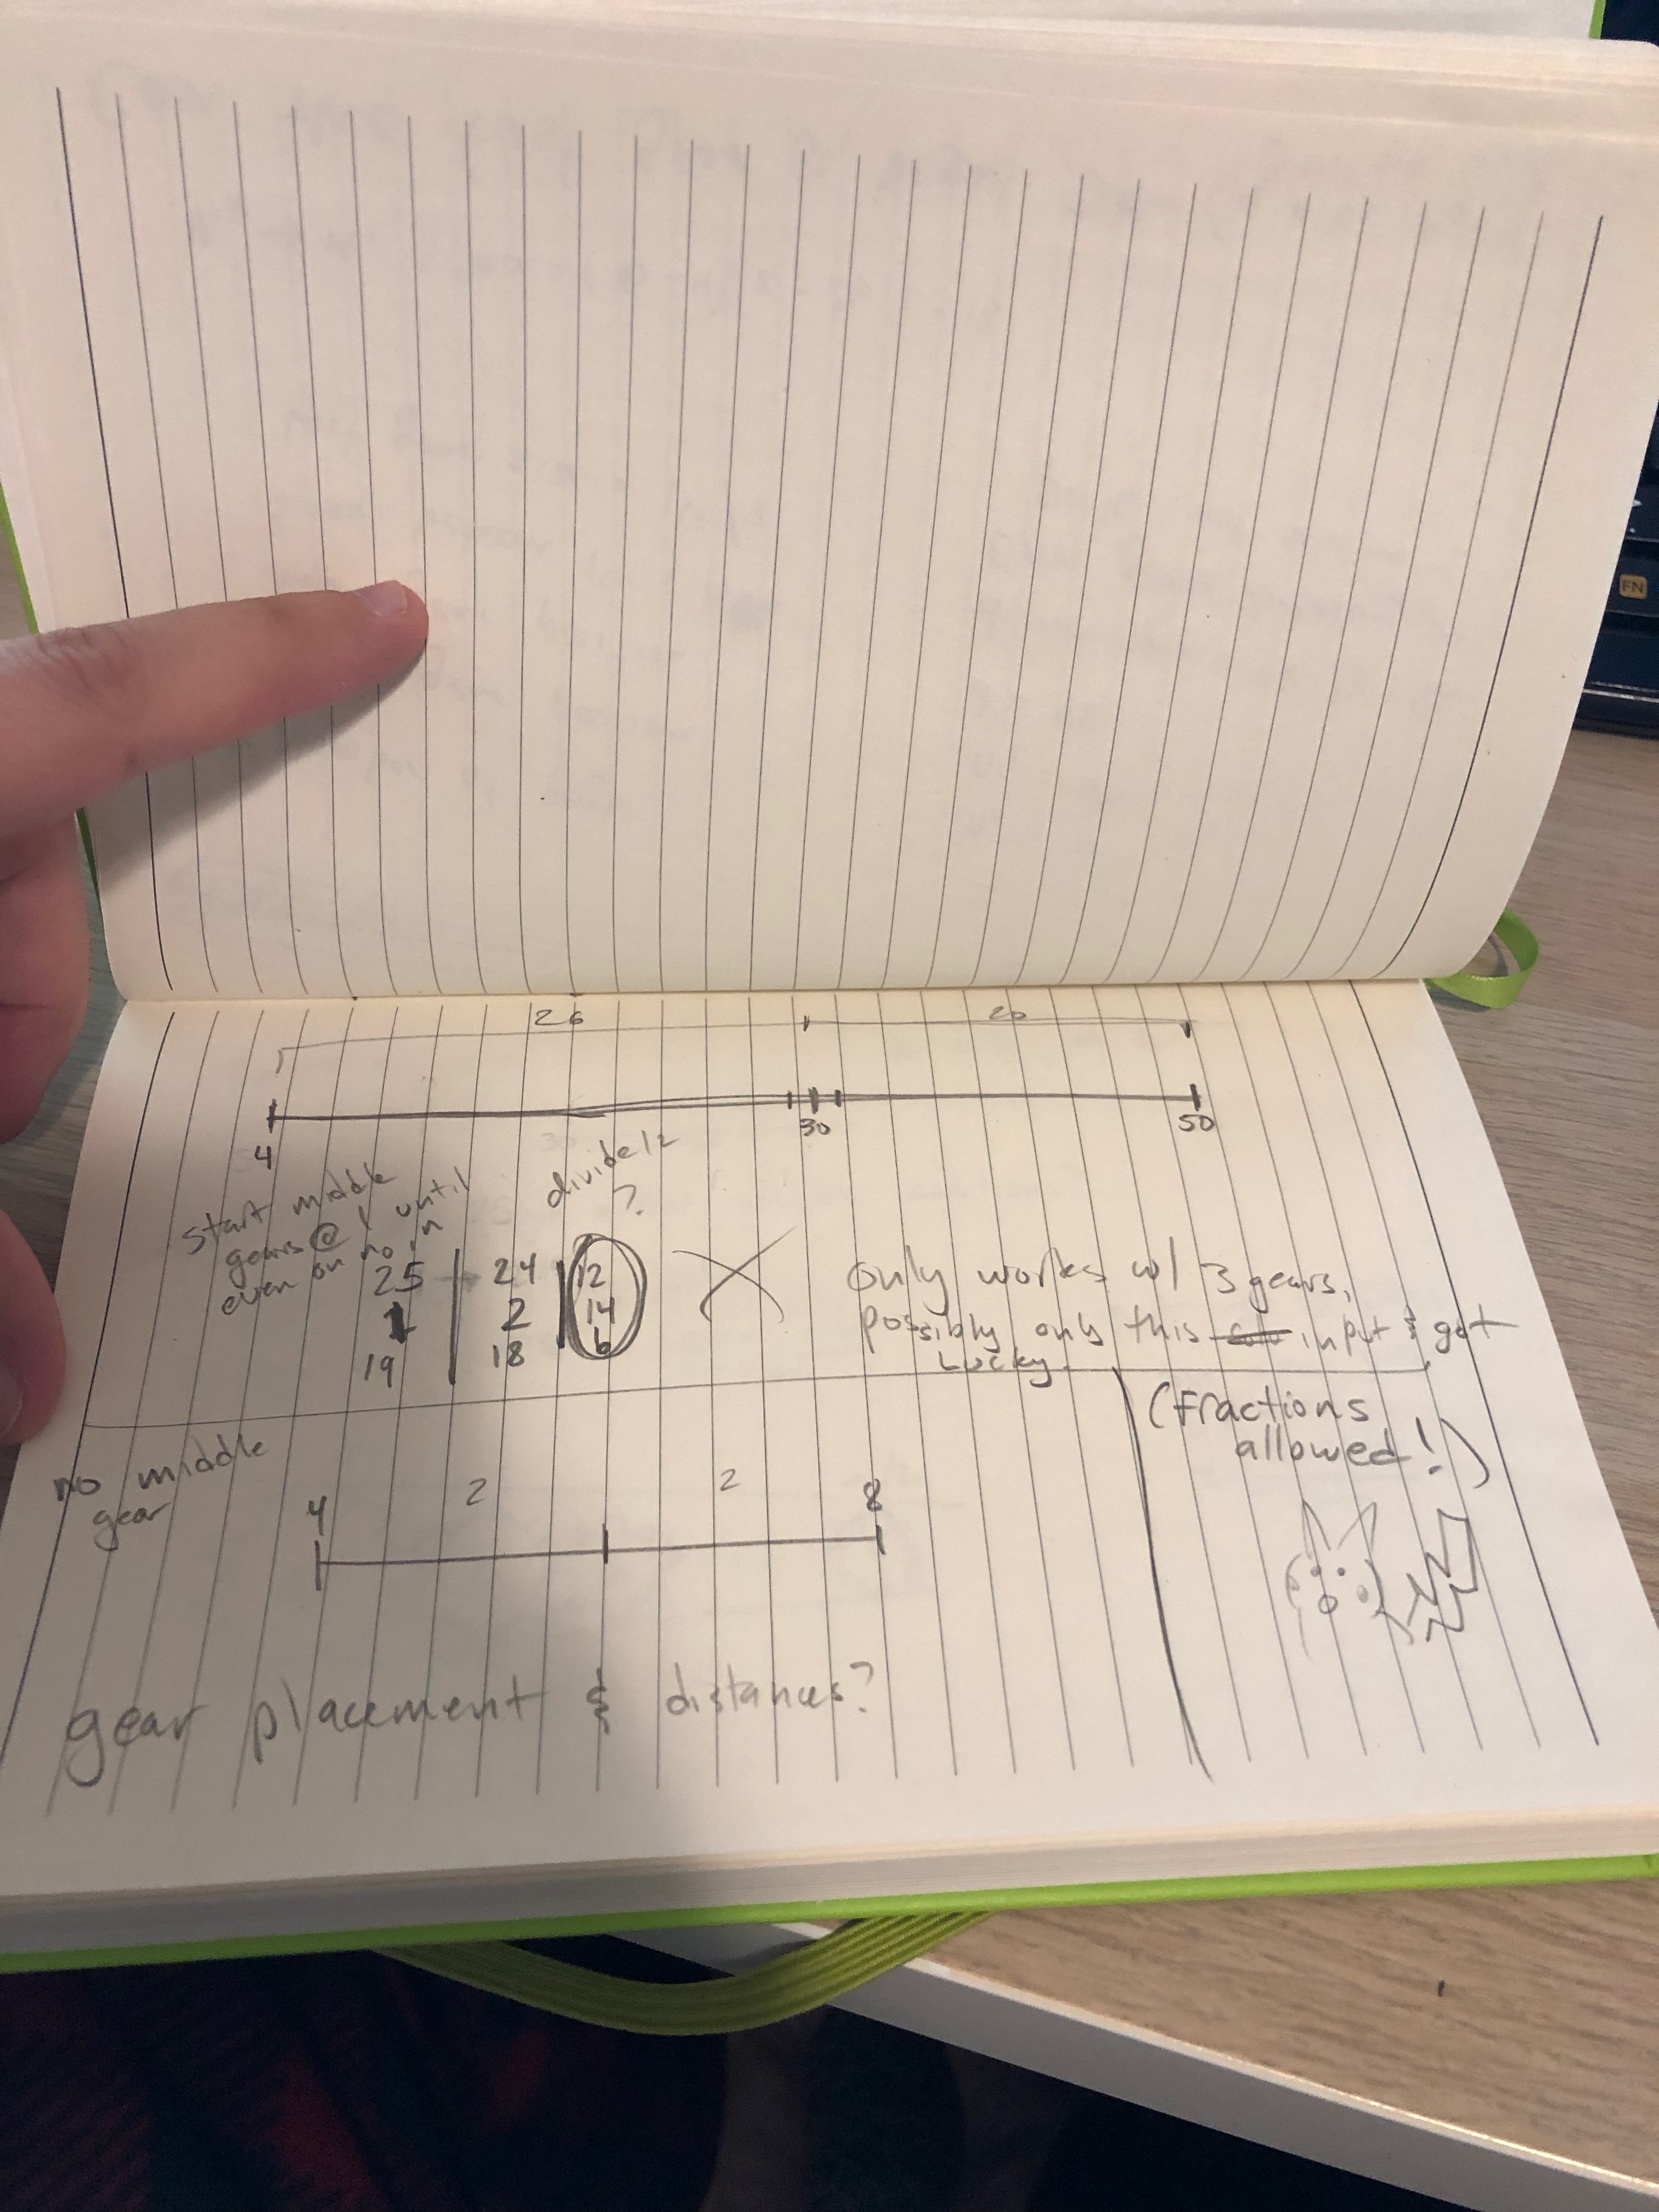 26 20
4 30 50
start middle
gears @ 1 until
even on no in
divide /2
?
25 24 12
1 2 14
19 18 6
only works w/ 3 gears,
possibly only this input & got
Lucky.
(Fractions
allowed!)
no middle
gear
4 2 2 8
gear placement & distances?
FN